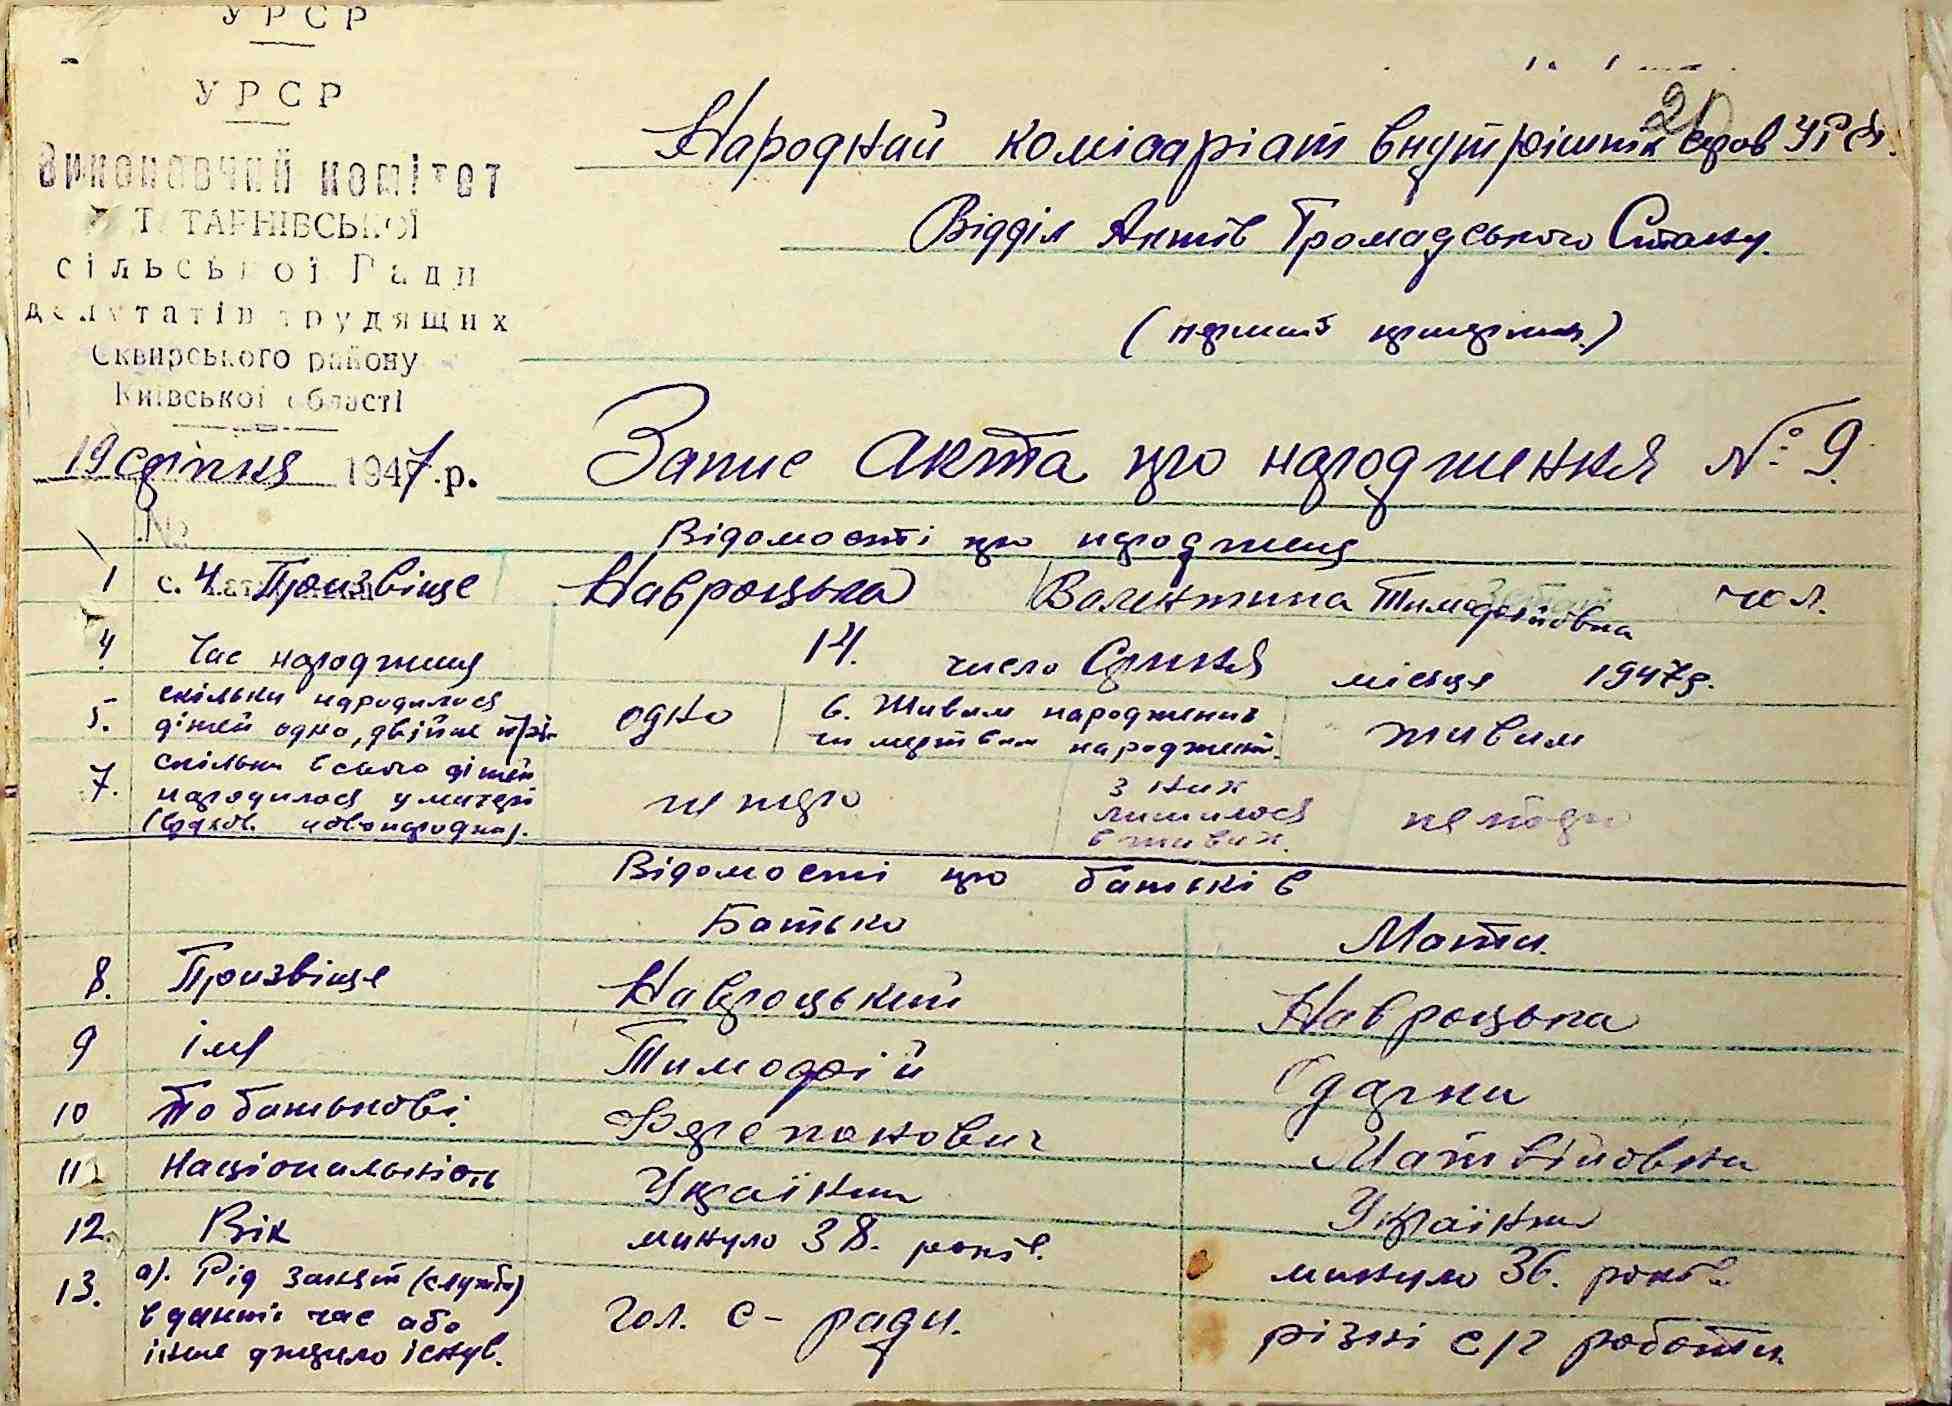 УРСР
УРСР
Виконавчий комітет
ТАТАРНІВСЬКОЇ
сільської Ради
депутатів трудящих
Сквирського району
Київської області
19 срітня 1947 р.
№
Народний комісаріат внутрішніх справ УРСР.
20
Відділ Актів Громадського Стану.
(перший)
Запис акта про народження № 9.
Відомості про народження
1 Призвіще Навроцька Валентина Тимофійовна
4 Час народження 14. число Српня місяця 1947р.
5. скільки народилося
дітей одно, двійне одно 6. Живим народжений
чи мертвим народжений. живим
7. скільки всього дітей
народилося у матері
не перо з них
лишилося
в живих.
Відомості про батьків
Батько Мати.
8. Призвіще Навроцький Навроцька
9 імя Тимофій Одарка
10 По батькові. Матвійовна
11 Національність Українець Українка
12. Вік минуло 38. років. минуло 36. років
13. а). Рід занять (служба)
в данний час або
інше джерело існув. гол. с-ради. різні с/г роботи